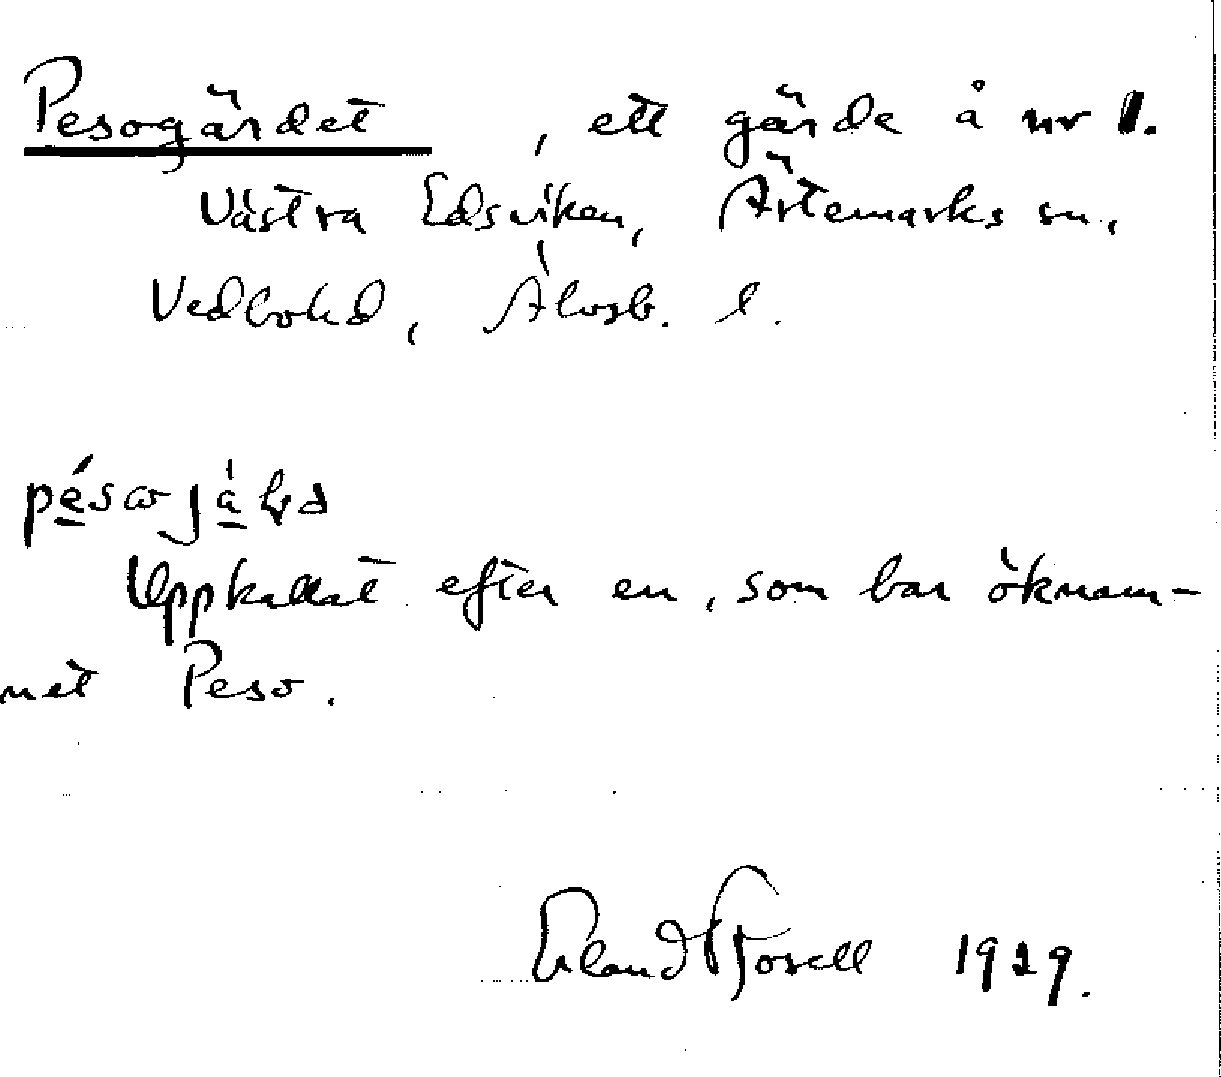 Pesogärdet, ett gärde å nr 1.
Västra Edsviken, Ärtemarks sn,
Vedbohd, Älvsb. l.
Uppkallat efter en, som bar öknam-
net Peso.
Erland 1929.